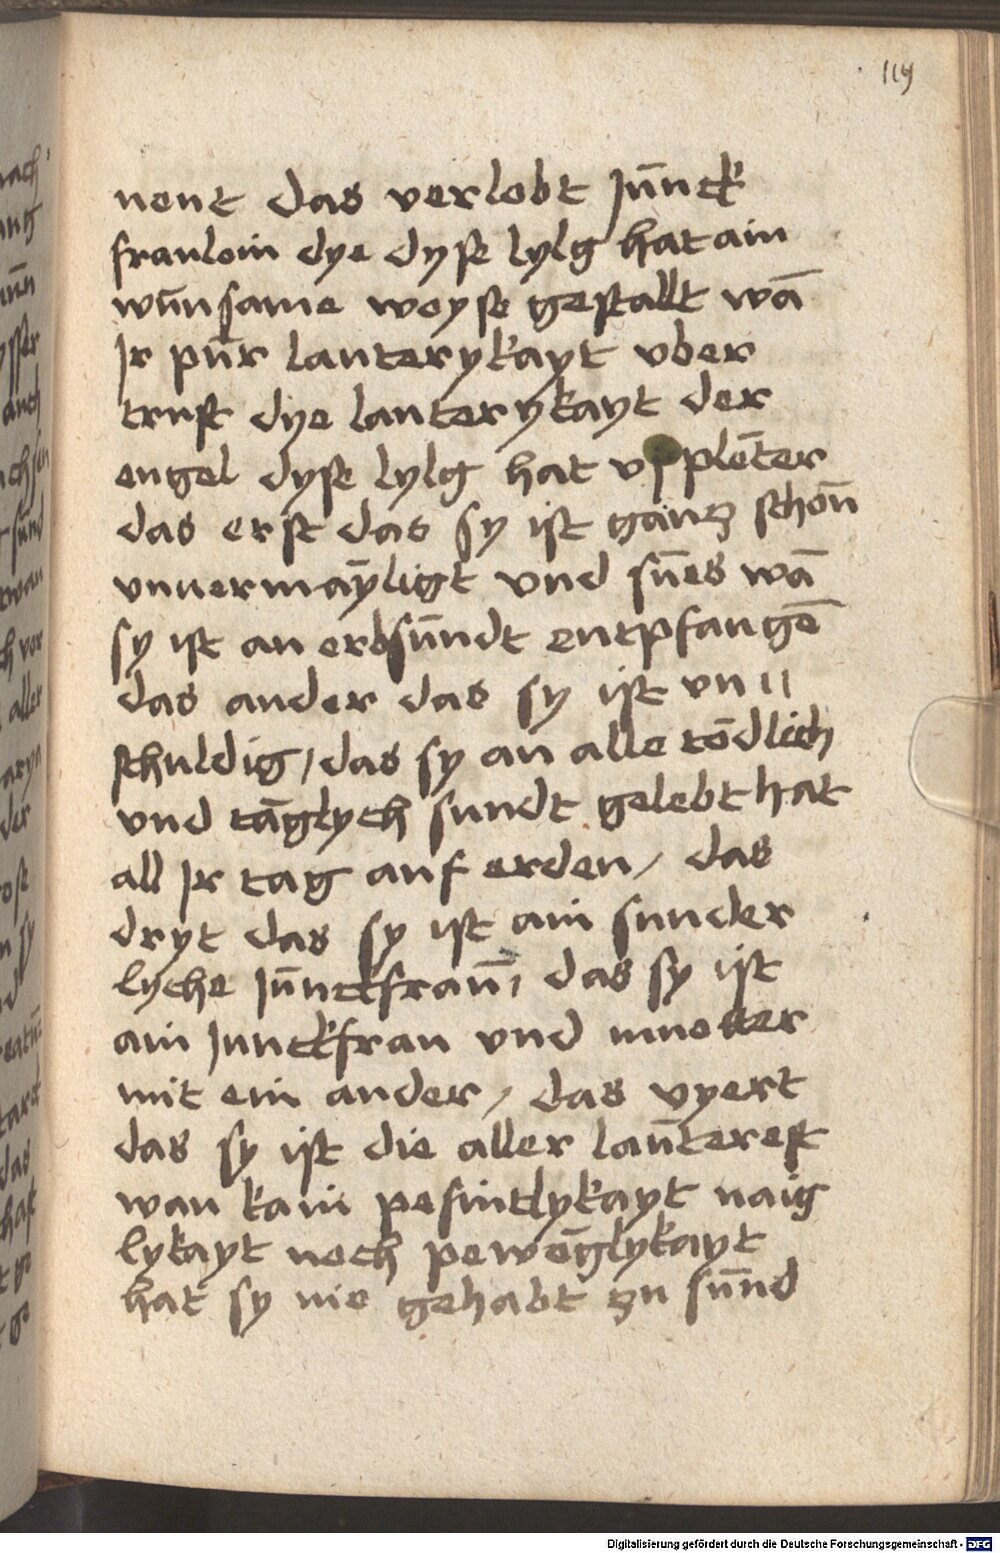 119
nent das verlobt Jūnck
fraulein dye dyse lylg hat ain
wūnsame weyse gestallt wā
Jr pūr lauterykayt vber
trust dye lauterykayt der
engel dyse lylg hat vj plēter
das erst das sy ist gantz schōn
vnuermāyligt vnd sūes wā
sy ist an erbsūndt entpfangē
das ander das sy ist vn //
schuldig / das sy an alle tōdlich
vnd tāglych sundt gelebt hat
all Jr tag auf erden / das
dryt das sy ist ain sunder
lyche Jūnckfraū / das sy ist
ain Junckfrau vnd muoter
mit ein ander / das vyert
das sy ist die aller lauterest
wan kain pesintlykayt naig
lykayt noch pewēglykayt
hat sy nie gehabt zu sūnd
Digitalisierung gefördert durch die Deutsche Forschungsgemeinschaft - DFG